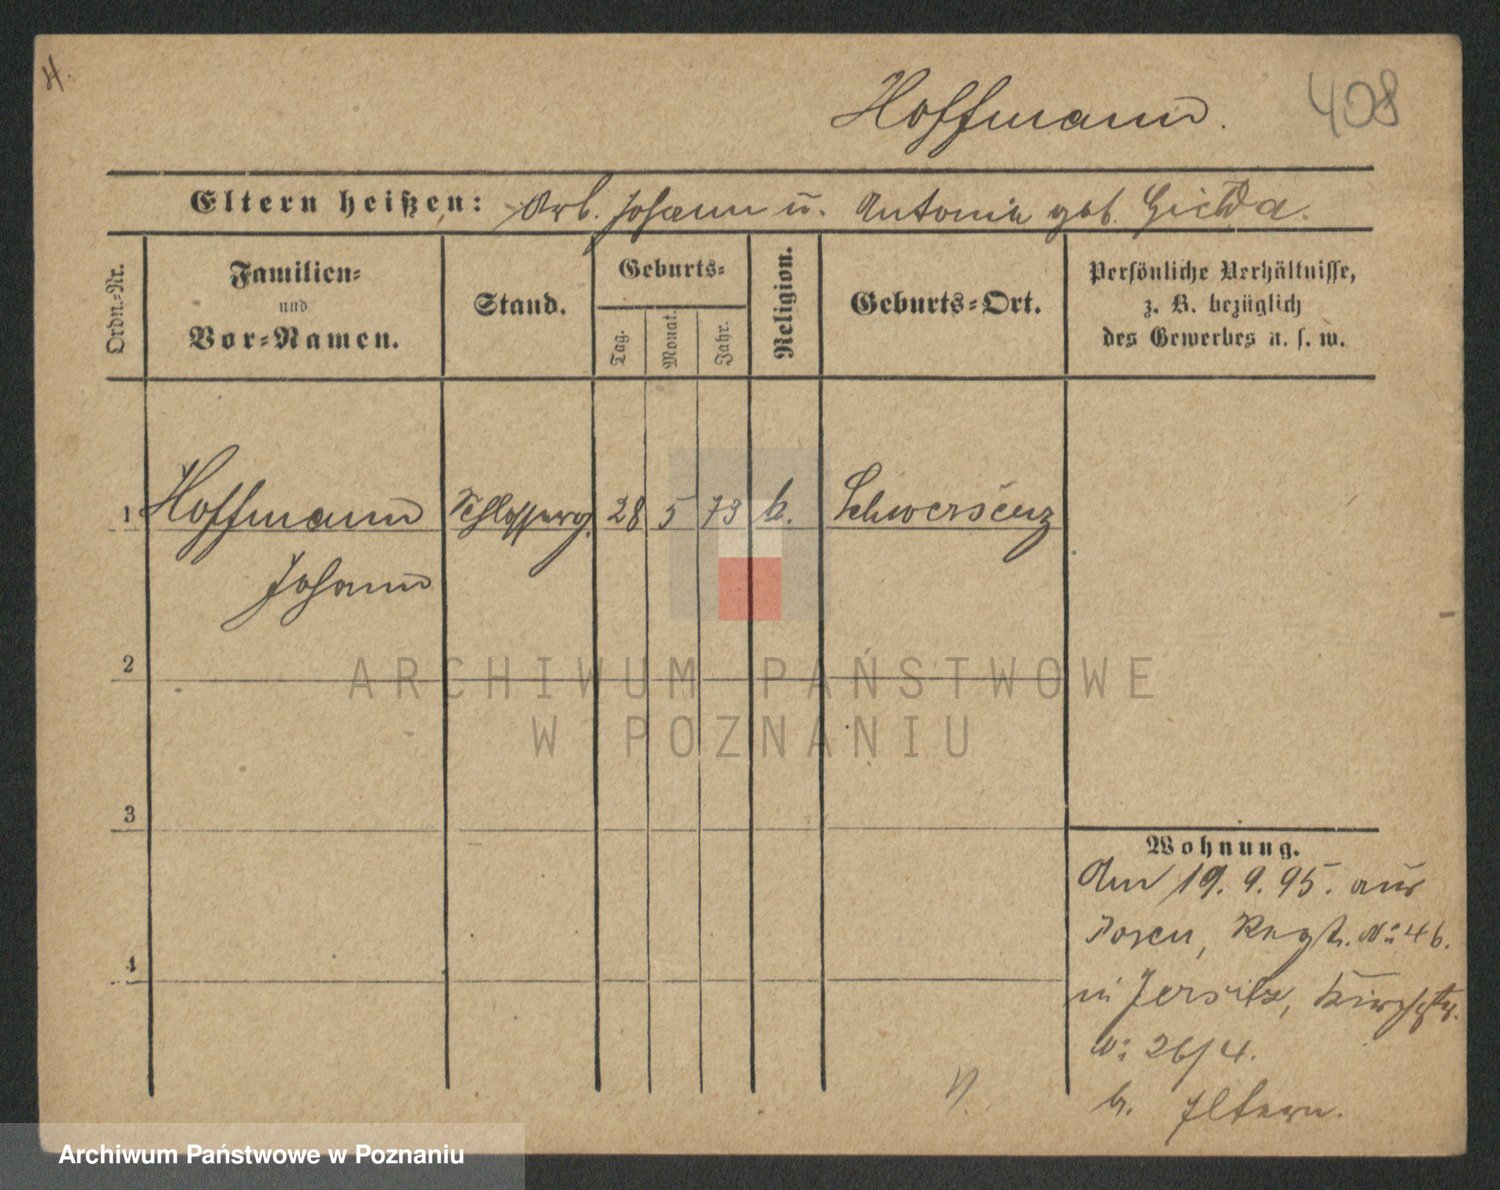 H.
Hoffmann.
408
Eltern heißen: Arb. Johann u. Antonie geb.
Ordn.-Nr.
Familien-
und
Vor-Namen.
Stand.
Geburts-
Tag.
Monat.
Jahr.
Religion.
Geburts-Ort.
Persönliche Verhältnisse,
z. B. bezüglich
des Gewerbes u. s. w.
1 Hoffmann Schlosserg. 28 5 73 k. Schwersenz
Johann
2
ARCHIWUM PAŃSTWOWE
W POZNANIU
3
Wohnung.
Am 19. 9. 95. aus
Posen, Regt. No 46.
4
in Jersitz, Kirchstr.
No 26/4.
b. Eltern.
Archiwum Państwowe w Poznaniu